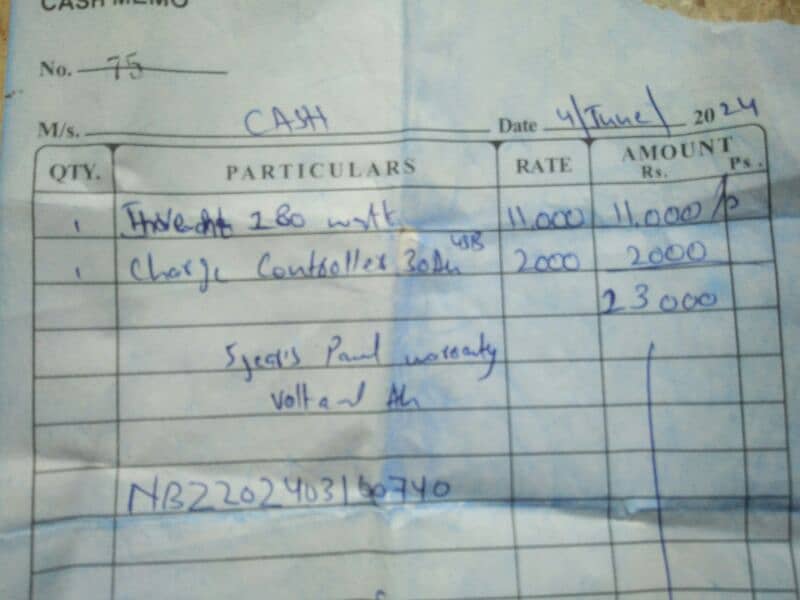 CASH MEMO
No. 75
M/s. CASH Date 4/June/ 2024
QTY. PARTICULARS RATE AMOUNT
Rs. Ps.
1 280 watt 11,000 11,000
1 Charge Controller 30Ah USB 2000 2000
23000
5 year's Panel warranty
Volt and Ah
NBZ202403160740